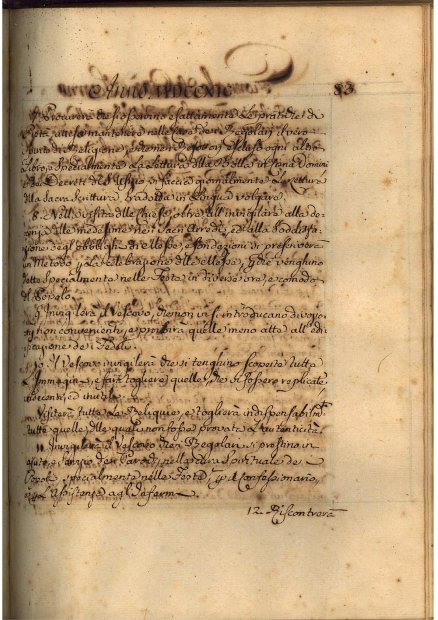 Anno MDCCXC
83
7. Procurerà che si osservino esattamente le pratiche di
Pietà, atte a mantenere nelle Case dei Regolari il vero
Spirito di Religione, e tenendo escluso ogni altro
Libro, e specialmente la Lettura della Bolla in Cena Domini
e dei Decreti del S. Ufizio si faccia giornalmente la lettura
della Sacra Scrittura, tradotta in Lingua volgare.
8. Nella visita delle Chiese, oltre all'invigilare alla de-
cenza delle medesime, nei Sacri Arredi, ed alla Soddisfa-
zione degli obblighi di Messe, e fondazioni, di prescriverà
un Metodo la celebrazione delle Messe, che venghino
dette specialmente nelle Feste, in diverse ore, e comodo
di Popolo.
9. Invigilerà il Vescovo, che non in si introducano divozio-
ni non convenienti, e proibirà quelle meno atte all'edi-
ficazione dei Fedeli.
10. Il Vescovo invigilerà che si tenghino scoperte tutte
le Immagini, e farà togliere quelle che fossero replicate,
indecenti, ed inutili.
Visiterà tutte le Reliquie, e toglierà indispensabilmte
tutte quelle, delle quali non fosse provata l'autenticità.
11. Invigilerà il Vescovo che i Regolari si prestino in
ajuto e servizio dei Parochi nella cura Spirituale dei
Popoli specialmente nelle Feste, al Confessionario,
assistenza agl'Infermi.
12. Riscontrerà